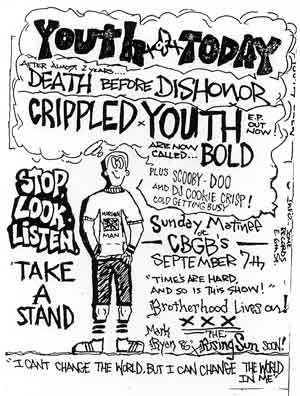 Youth of TODAY
AFTER ALMOST 2 YEARS....
DEATH BEFORE DISHONOR
CRIPPLED X YOUTH
E.P. OUT NOW!
ARE NOW CALLED... BOLD
PLUS SCOOBY-DOO
AND DJ COOKIE CRISP!
COLD GETTING BUSY
STOP
LOOK,
LISTEN
TAKE
A
STAND
MAN
Sunday Matinee
at
CBGB'S
SEPTEMBER 7th,
"TIMES ARE HARD,
AND SO IS THIS SHOW!"
Brotherhood Lives on!
XXX
Mark
Ryan &
THE
Rising Sun soon!
RECORDS
"I CAN'T CHANGE THE WORLD, BUT I CAN CHANGE THE WORLD
IN ME"